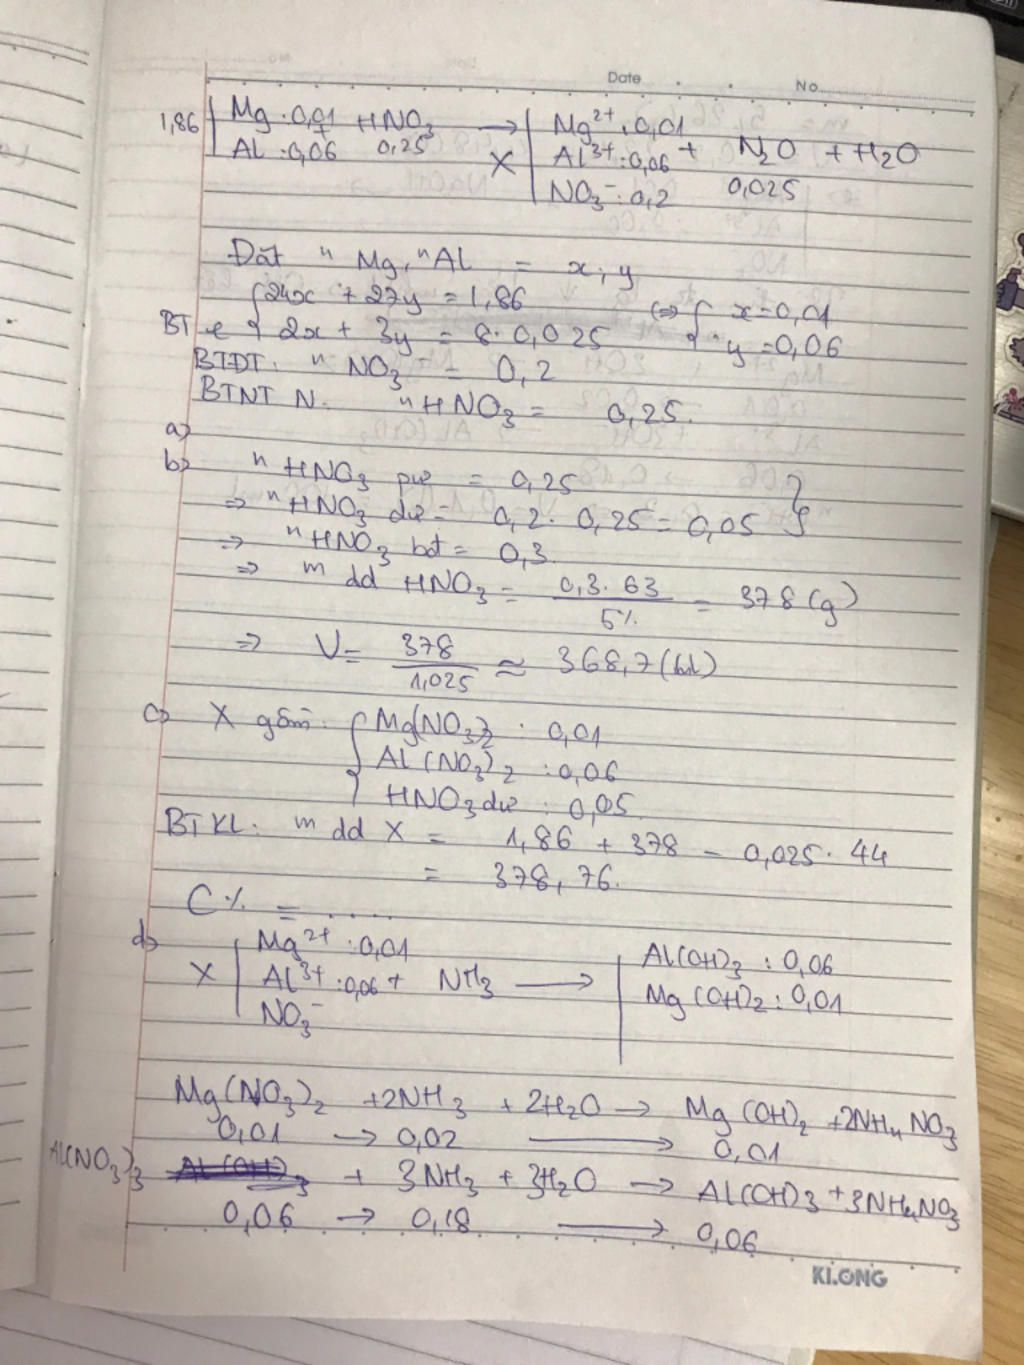 Date No.
1,86 Mg : 0,01 + HNO3 → Mg2+ : 0,01
Al : 0,06 0,25 X Al3+ : 0,06 + N2O + H2O
NO3- : 0,2 0,025
Đặt n Mg, n Al = x, y
24x + 27y = 1,86 (⇒) x = 0,01
BT e 2x + 3y = 8. 0,025 y = 0,06
BTĐT: n NO3- = 0,2
BTNT N: n HNO3 = 0,25.
a)
b) n HNO3 pư = 0,25
⇒ n HNO3 dư = 0,2. 0,25 = 0,05
⇒ n HNO3 bđ = 0,3
⇒ m dd HNO3 = 0,3. 63 / 5% = 378 (g)
⇒ V = 378 / 1,025 ≈ 368,7 (ml)
c) X gồm: Mg(NO3)2 : 0,01
Al(NO3)2 : 0,06
HNO3 dư : 0,05
BTKL: m dd X = 1,86 + 378 - 0,025. 44
= 378,76.
C% = .....
d) Mg2+ : 0,01 Al(OH)3 : 0,06
X Al3+ : 0,06 + NH3 → Mg(OH)2 : 0,01
NO3-
Mg(NO3)2 + 2NH3 + 2H2O → Mg(OH)2 + 2NH4NO3
0,01 → 0,02 → 0,01
Al(NO3)3 + 3NH3 + 3H2O → Al(OH)3 + 3NH4NO3
0,06 → 0,18 → 0,06
KLONG